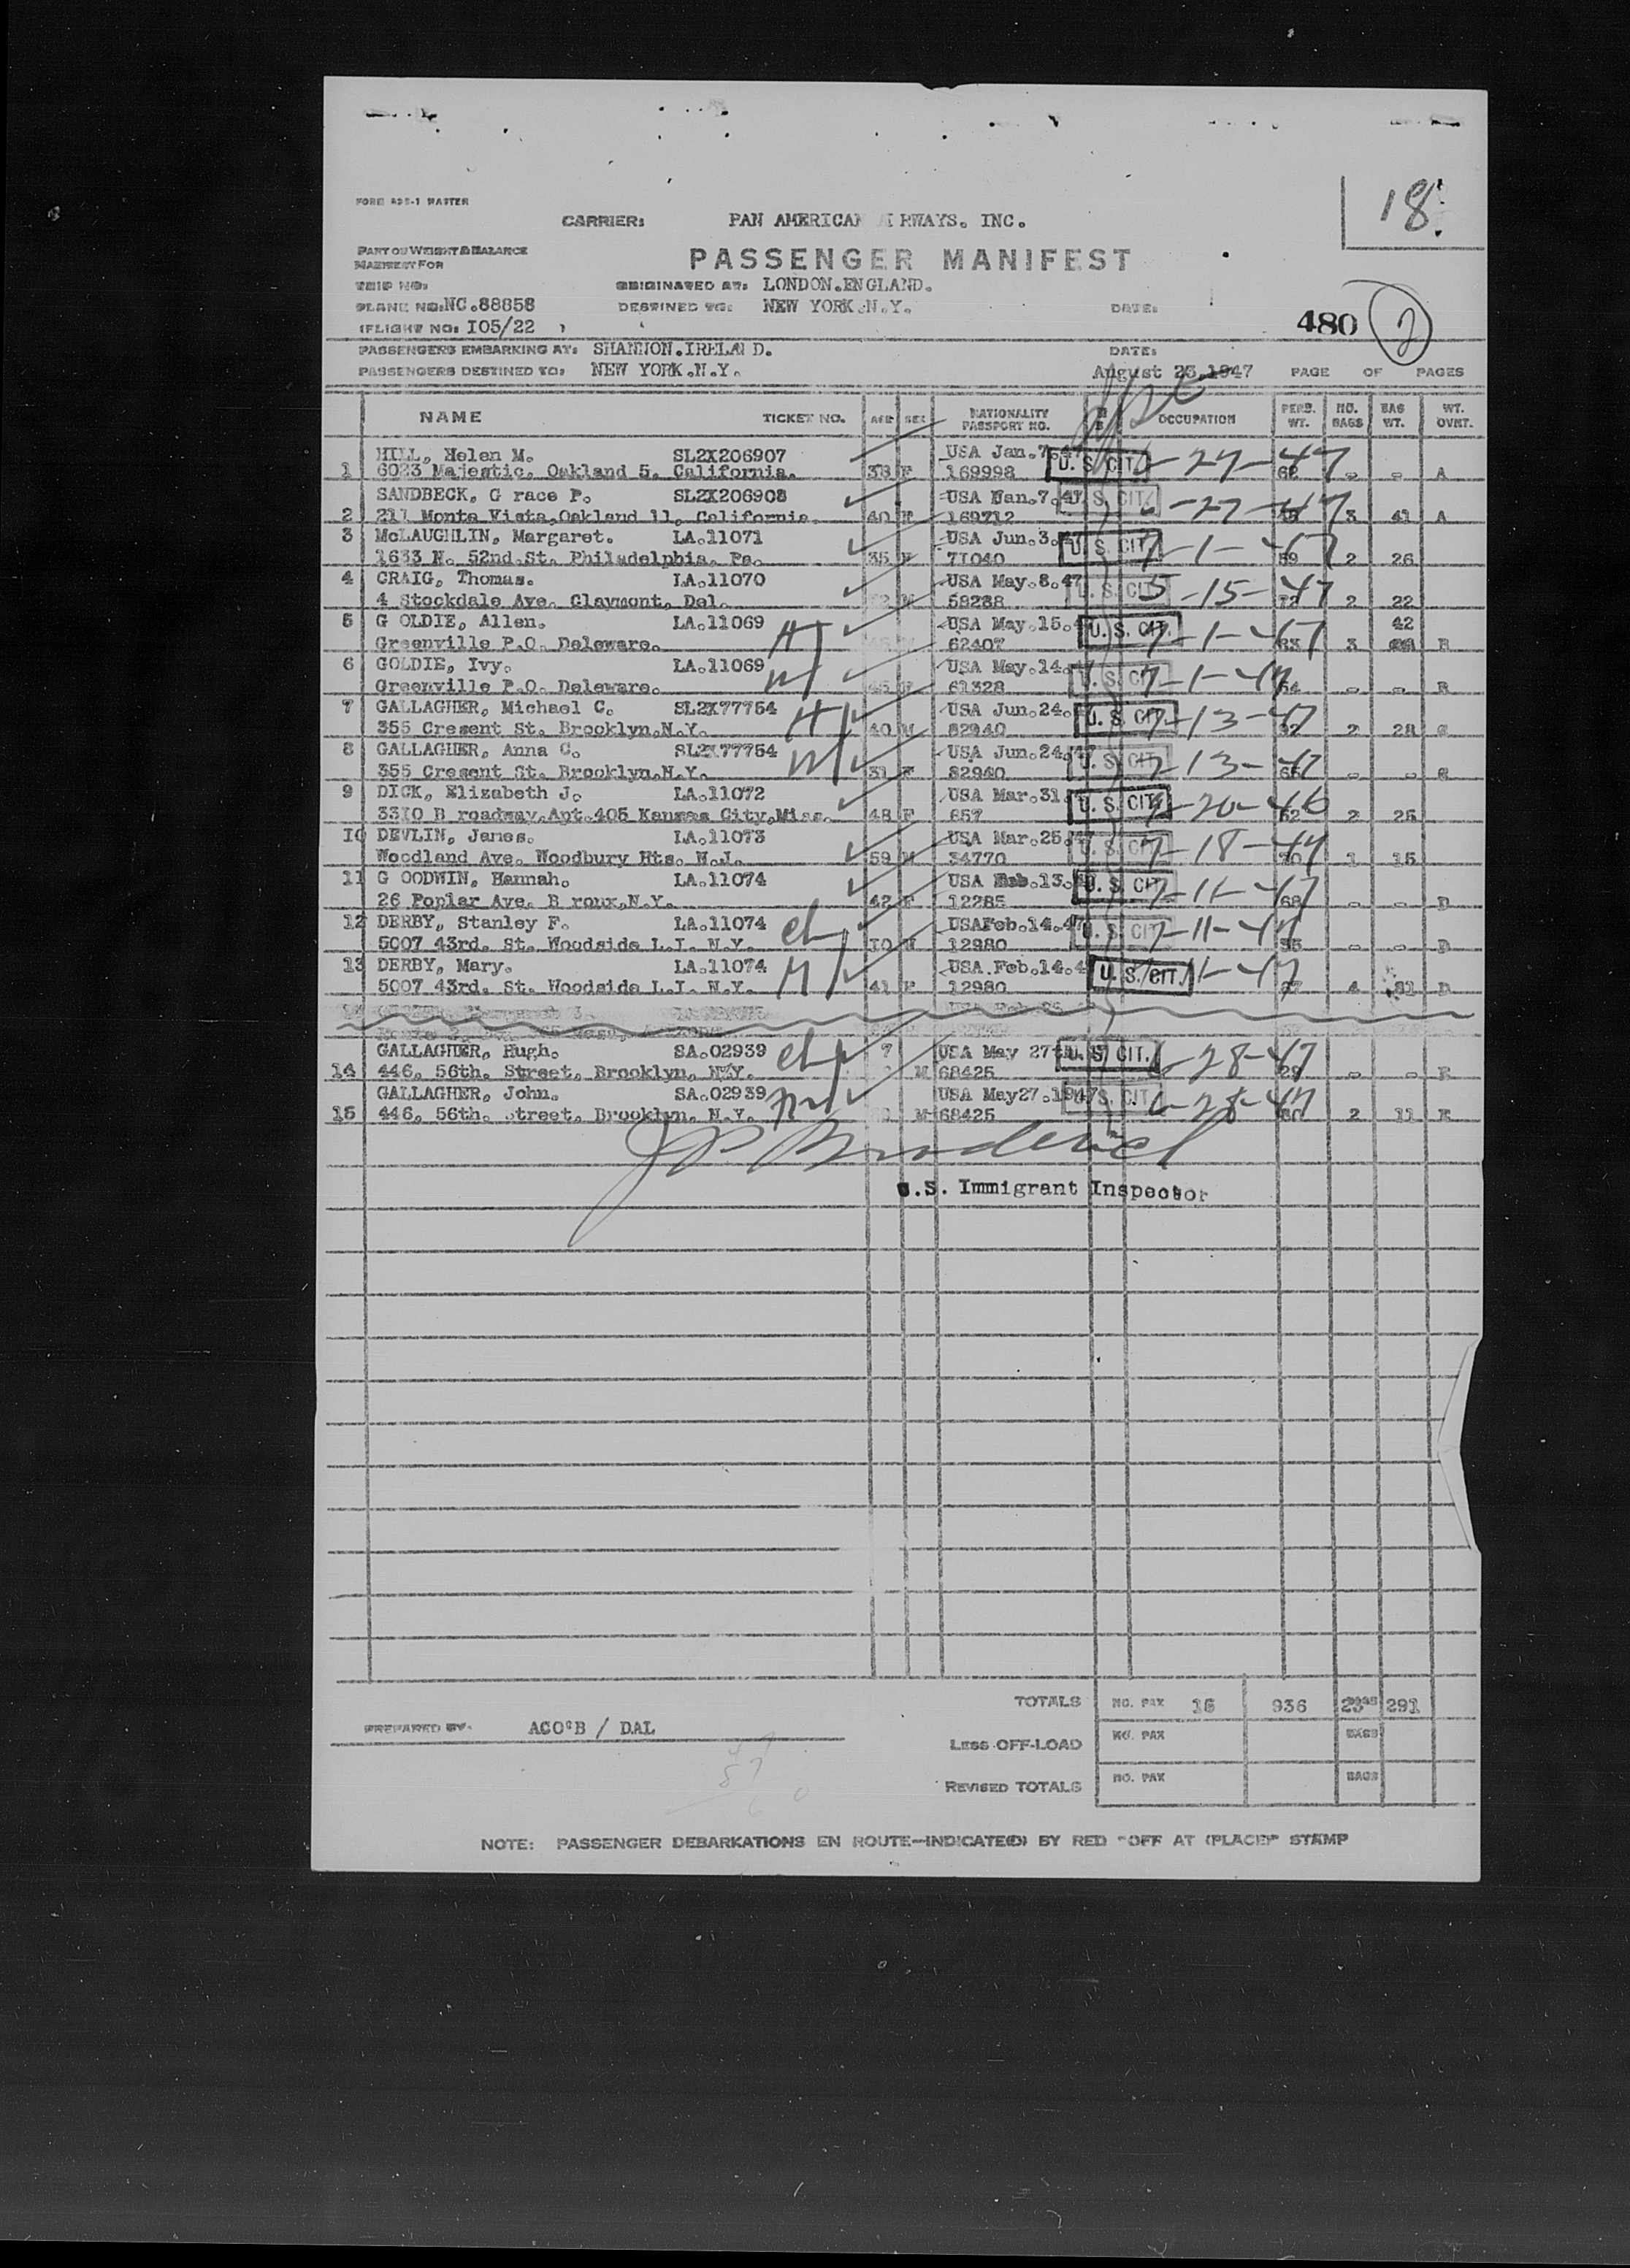 18
FORM ADS-1 MASTER
CARRIER: PAN AMERICAN RWAYS. INC.
PART OF WEIGHT & BALANCE
MANIFEST FOR
PASSENGER MANIFEST
TRIP NO:
ORIGINATED AT: LONDON.ENGLAND.
PLANE NO:NC.88858
DESTINED TO: NEW YORK.N.Y.
DATE:
480 2
(FLIGHT NO: I05/22 )
PASSENGERS EMBARKING AT: SHANNON.IRELAN D.
DATE:
PASSENGERS DESTINED TO: NEW YORK.N.Y.
August 23,1947 PAGE OF PAGES
NAME TICKET NO. AGE SEX NATIONALITY PASSPORT NO. OCCUPATION PERS. WT. NO. BAGS BAG WT. WT. OVRT.
HILL, Helen M. SL2X206907 USA Jan.7.47
1 6023 Majestic. Oakland 5. California. 38 F 169998 U. S. CIT. 6-27-47 62 - - A
SANDBECK, G race P. SL2X206908 USA Jan.7.47
2 211 Monte Vista,Oakland 11, California. 40 F 169712 U. S. CIT. 6-27-47 3 41 A
3 McLAUGHLIN, Margaret. LA.11071 USA Jun.3.47
1633 N. 52nd.St. Philadelphia. Pa. 35 F 71040 U. S. CIT. 7-1-47 59 2 26
4 CRAIG, Thomas. LA.11070 USA May.8.47
4 Stockdale Ave. Claymont, Del. M 59288 U. S. CIT. 5-15-47 72 2 22
5 G OLDIE, Allen. LA.11069 H USA May.15. 42
Greenville P.O. Deleware. 62407 U. S. CIT. 7-1-47 83 3 B
6 GOLDIE, Ivy. LA.11069 W USA May.14.
Greenville P.O. Deleware. 45 F 61328 U. S. CIT. 7-1-47 64 - - B
7 GALLAGHER, Michael C. SL2X77754 H USA Jun.24.
355 Cresent St. Brooklyn.N.Y. 40 M 82940 U. S. CIT. 7-13-47 2 28 C
8 GALLAGHER, Anna C. SL2X77754 W USA Jun.24.47
355 Cresent St. Brooklyn.N.Y. 31 F 82940 U. S. CIT. 7-13-47 65 - - C
9 DICK, Elizabeth J. LA.11072 USA Mar.31.
33I0 B roadway.Apt.405 Kansas City,Miss. 48 F 657 U. S. CIT. -20-46 62 2 25
I0 DEVLIN, James. LA.11073 USA Mar.25.47
Woodland Ave. Woodbury Hts. N.J. 59 M 34770 U. S. CIT. 7-18-47 1 15
11 G OODWIN, Hannah. LA.11074 USA Feb.13.
26 Poplar Ave. B ronx,N.Y. 42 F 12285 U. S. CIT. 7-11-47 68 - - D
12 DERBY, Stanley F. LA.11074 ch USAFeb.14.47
5007 43rd. St. Woodside L.I. N.Y. I0 M 12980 U. S. CIT. 7-11-47 35 - - D
13 DERBY, Mary. LA.11074 M USA.Feb.14.4
5007 43rd. St. Woodside L.I. N.Y. 41 F 12980 U. S. CIT. 11-47 4 81 D
GALLAGHER, Hugh. SA.02939 ch 7 USA May 27th.
14 446. 56th. Street, Brooklyn, N.Y. M 68425 U. S. CIT. 6-28-47 29 - - E
GALLAGHER, John. SA.02939 USA May27.1947
15 446. 56th. Street. Brooklyn. N.Y. M 68425 U. S. CIT. 6-28-47 80 2 11 E
U.S. Immigrant Inspector
TOTALS NO. PAX 16 936 BAGS 23 291
PREPARED BY: ACO'B / DAL
LESS OFF-LOAD NO. PAX BAGS
REVISED TOTALS NO. PAX BAGS
NOTE: PASSENGER DEBARKATIONS EN ROUTE—INDICATE(D) BY RED "OFF AT (PLACE)" STAMP